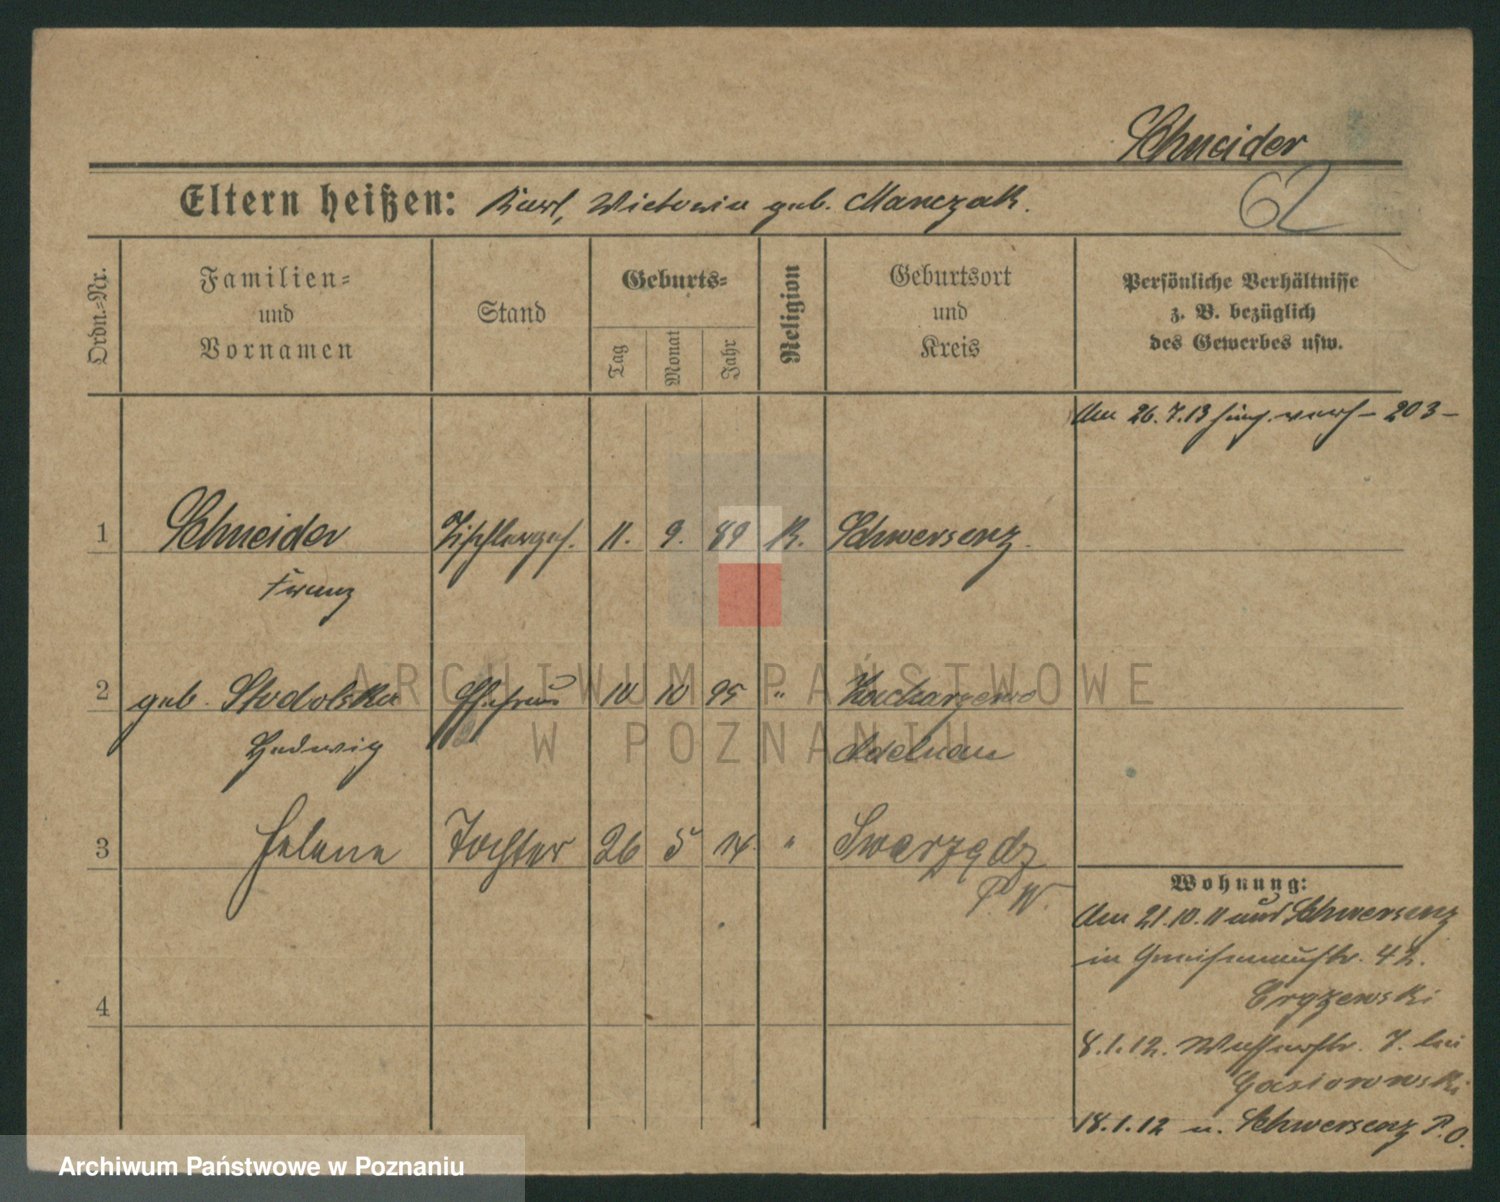 Schneider
62
Eltern heißen: Karl, Victoria geb. Manczak.
Ordn.=Nr.
Familien=
und
Vornamen
Stand
Geburts=
Tag
Monat
Jahr
Religion
Geburtsort
und
Kreis
Persönliche Verhältnisse
z. B. bezüglich
des Gewerbes usw.
Am 26.7.13 hier verh – 203 –
1 Schneider Tischlerges. 11. 9. 89 K. Schwersenz.
Franz
2 geb. Stodolska Ehefrau 10 95 "
Hedwig Adelnau
3 Helene Tochter 26 5 14 " Swarzędz
P. W.
4
Wohnung:
Am 21.10.11 aus Schwersenz
in Gneisenaustr. 42.
Cryzewski
8.1.12. Wasserstr. 7. bei
Gasiorowski
18.1.12 n. Schwersenz P.O.
ARCHIWUM PAŃSTWOWE
W POZNANIU
Archiwum Państwowe w Poznaniu